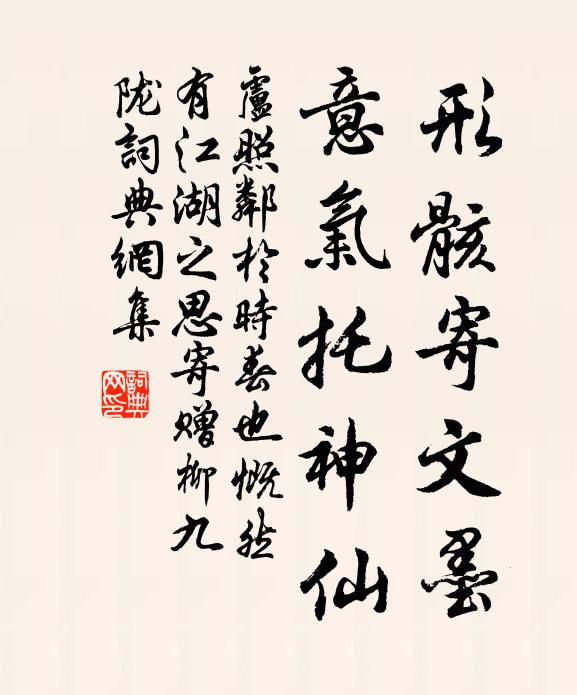 形骸寄文墨
意氣托神仙
盧照鄰於時春也慨然
有江湖之思寄贈柳九
陇詞典網集
詞典网印